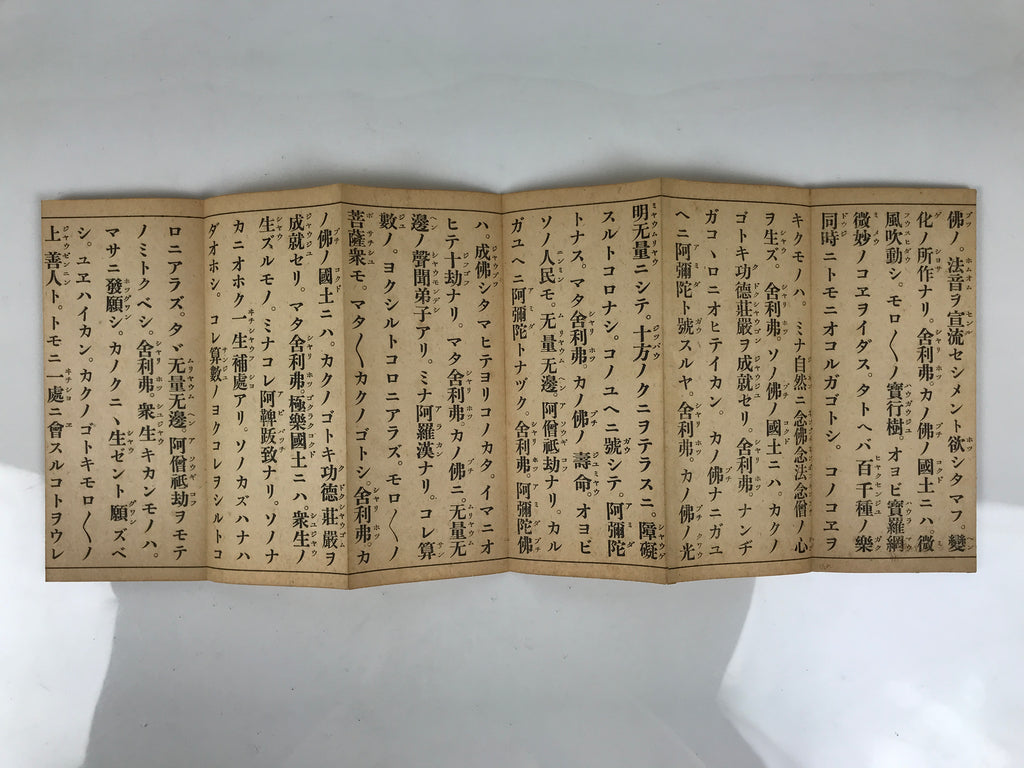 佛ノ。法音ヲ宣流セシメント欲シタマフ。變
化ノ所作ナリ。舍利弗。カノ佛ノ國土ニハ微
風吹動シ。モロ〱ノ寶行樹。オヨビ寶羅網
微妙ノコヱヲイダス。タトヘバ百千種ノ樂
同時ニトモニオコルガゴトシ。コノコヱヲ
キクモノハ。ミナ自然ニ念佛念法念僧ノ心
ヲ生ズ。舍利弗。ソノ佛ノ國土ニハ。カクノ
ゴトキ功德莊嚴ヲ成就セリ。舍利弗。ナンヂ
ガコヽロニオヒテイカン。カノ佛ナニガユ
ヘニ阿彌陀ト號スルヤ。舍利弗。カノ佛ノ光
明无量ニシテ。十方ノクニヲテラスニ。障礙
スルトコロナシ。コノユヘニ號シテ。阿彌陀
トナス。マタ舍利弗。カノ佛ノ壽命。オヨビ
ソノ人民モ。无量无邊。阿僧祇劫ナリ。カル
ガユヘニ阿彌陀トナヅク。舍利弗。阿彌陀佛
ハ。成佛シタマヒテヨリコノカタ。イマニオ
ヒテ十劫ナリ。マタ舍利弗。カノ佛ニ。无量无
邊ノ聲聞弟子アリ。ミナ阿羅漢ナリ。コレ算
數ノ。ヨクシルトコロニアラズ。モロ〱ノ
菩薩衆モ。マタ〱カクノゴトシ。舍利弗。カ
ノ佛ノ國土ニハ。カクノゴトキ功德莊嚴ヲ
成就セリ。マタ舍利弗。極樂國土ニハ。衆生ノ
生ズルモノ。ミナコレ阿鞞跋致ナリ。ソノナ
カニオホク一生補處アリ。ソノカズハナハ
ダオホシ。コレ算數ノヨクコレヲシルトコ
ロニアラズ。タヾ无量无邊。阿僧祇劫ヲモテ
ノミトクベシ。舍利弗。衆生キカンモノハ。
マサニ發願シ。カノクニヽ生ゼント願ズベ
シ。ユヱハイカン。カクノゴトキモロ〱ノ
上善人ト。トモニ一處ニ會スルコトヲウレ